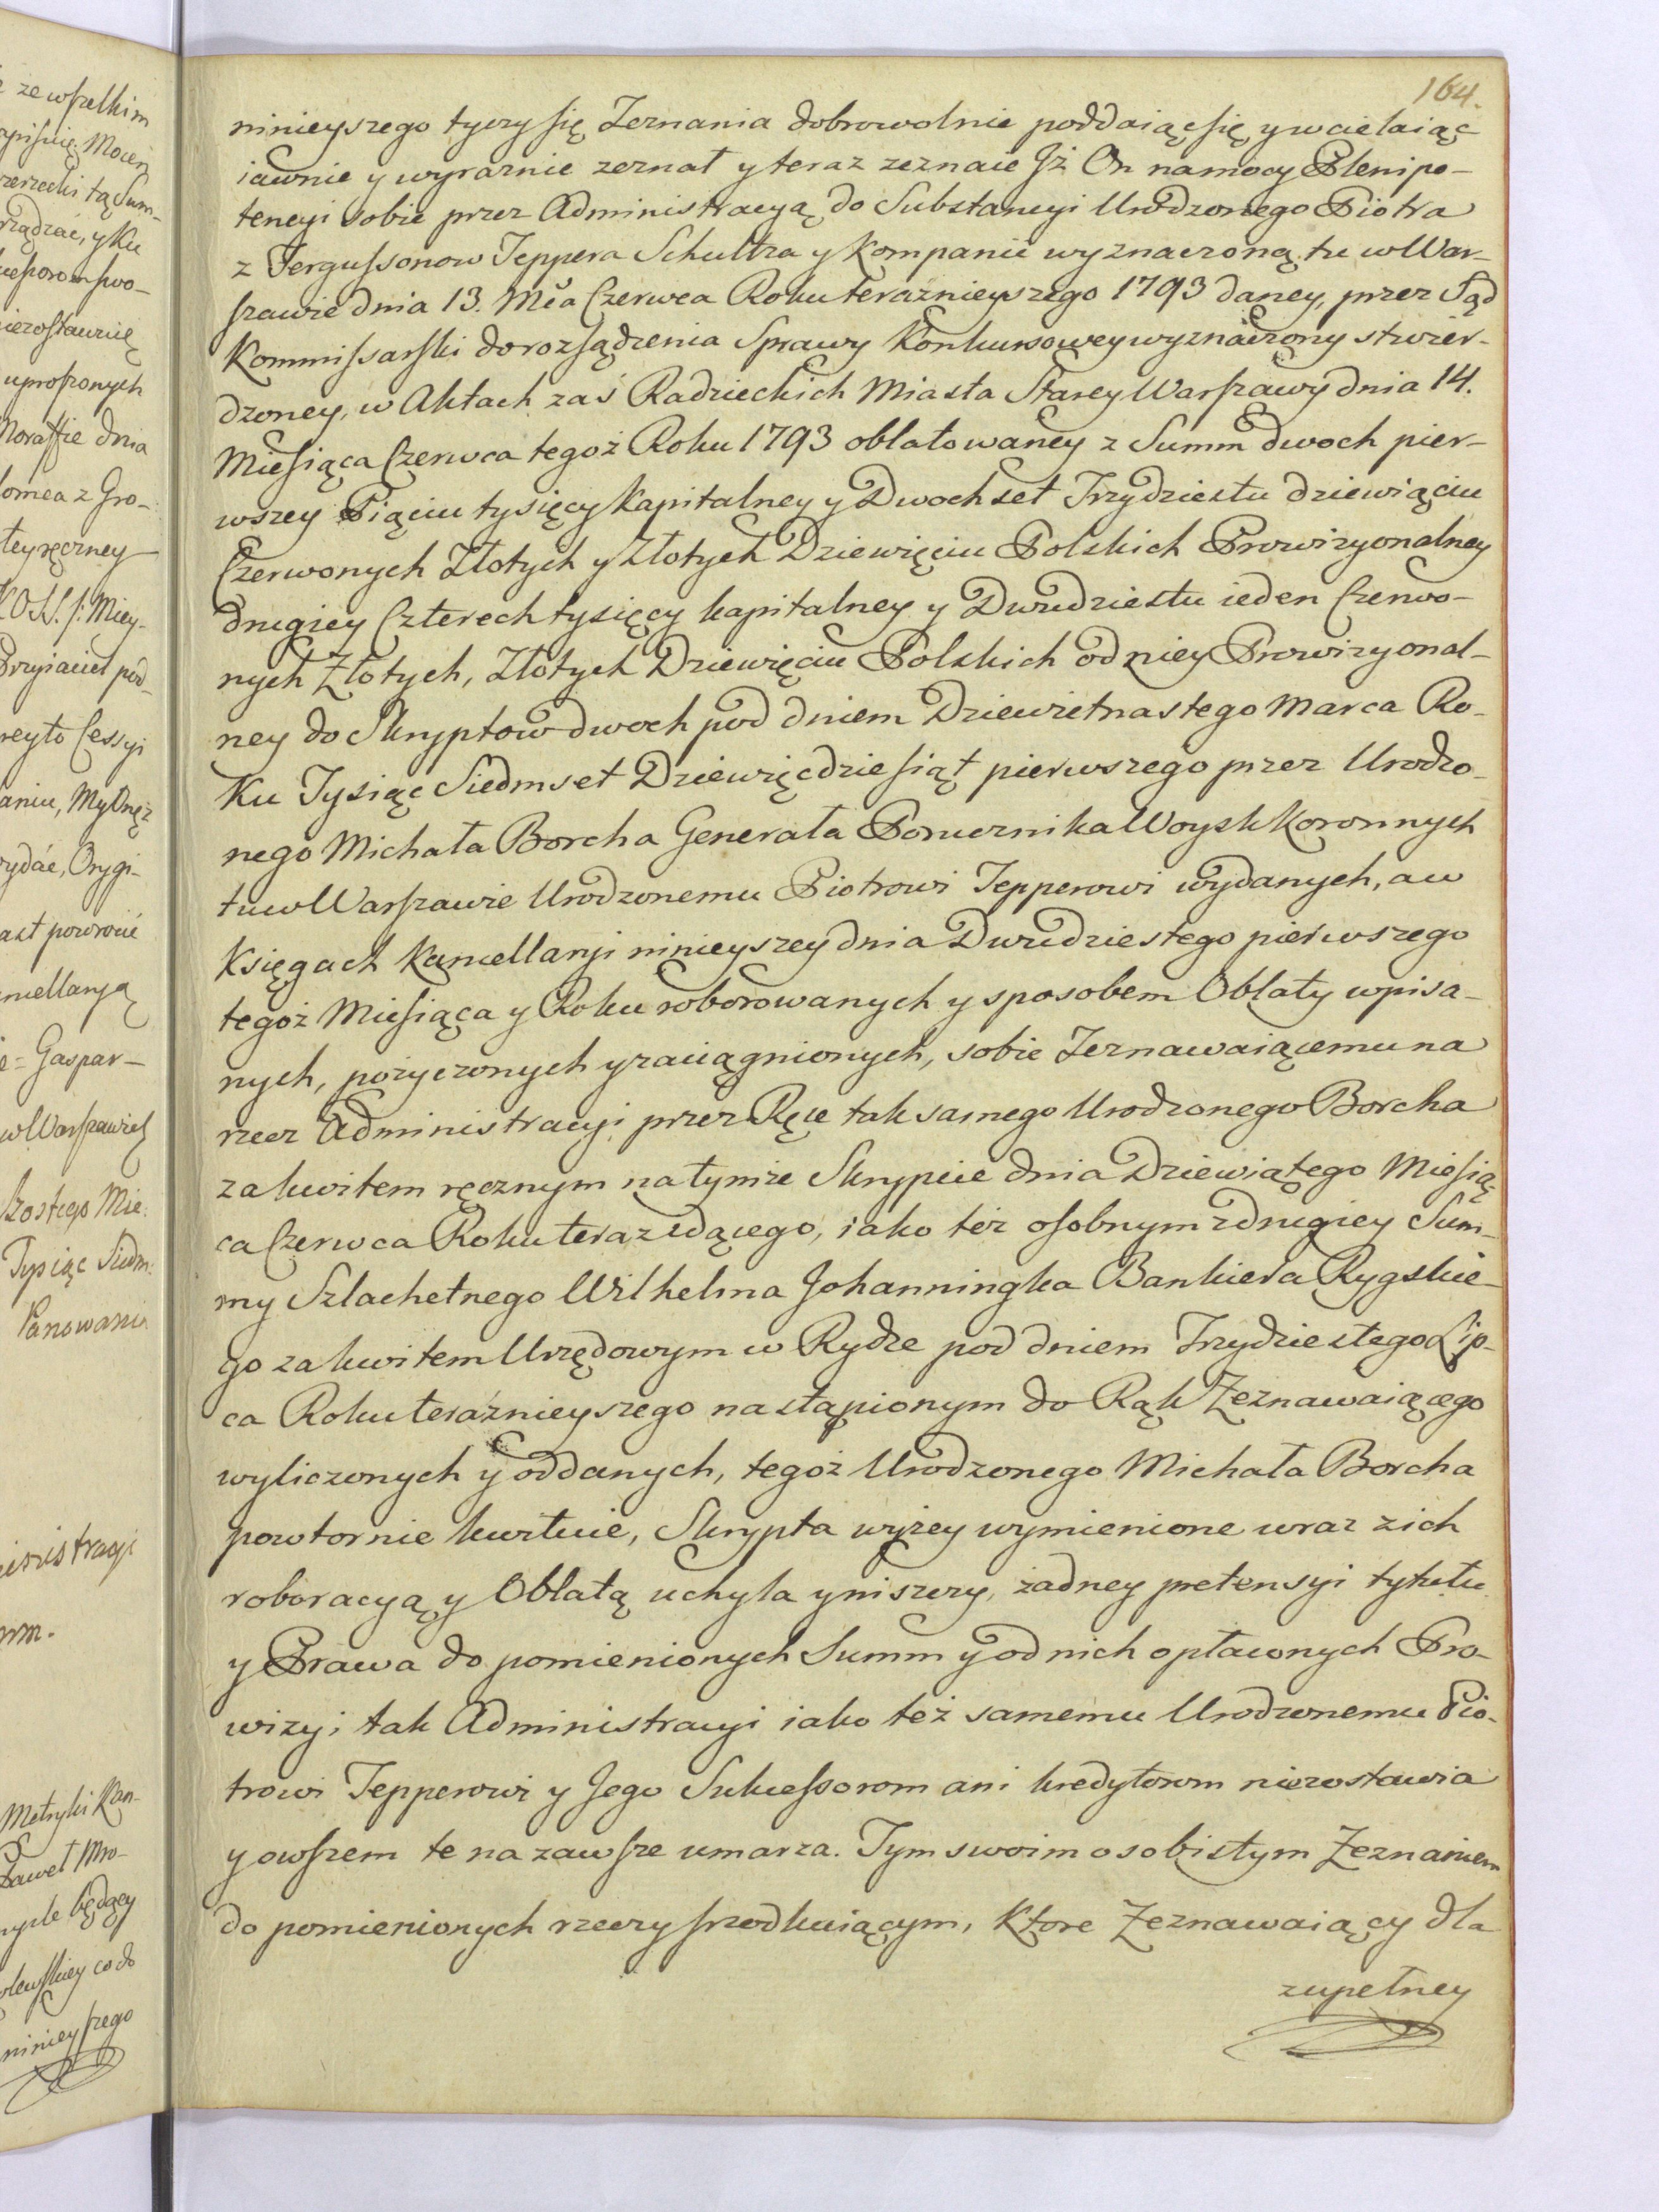 164.
ninieyszego tyczy się Zeznania dobrowolnie poddaiąc się y wcielaiąc
iawnie y wyraznie zeznał y teraz zeznaie Jż On na mocy Plenipo-
tencyi sobie przez Administracyą do Substancyi Urodzonego Piotra
z Fergussonow Teppera Schultza y Kompanie wyznaczoną tu w War-
szawie dnia 13. Mca Czerwca Roku teraznieyszego 1793 daney, przez Sąd
Kommissarski do rozsądzenia Sprawy Konkursowey wyznaczony stwier-
dzoney, w Aktach zaś Radzieckich Miasta Starey Warszawy dnia 14.
Miesiąca Czerwca tegoż Roku 1793 oblatowaney z Summ dwoch pier-
wszey Piąciu tysięcy Kapitalney y Dwochset Trzydziestu dziewiąciu
Czerwonych Złotych y Złotych Dziewięciu Polskich Prowizyonalney
drugiey Czterech tysięcy kapitalney y Dwudziestu ieden Czerwo-
nych Złotych, Złotych Dziewięciu Polskich od niey Prowizyonal-
ney do Skryptow dwoch pod dniem Dziewietnastego Marca Ro-
ku Tysiąc Siedmset Dziewięcdziesiąt pierwszego przez Urodzo-
nego Michała Borcha Generała Porucznika Woysk Koronnych
tu w Warszawie Urodzonemu Piotrowi Tepperowi wydanych, a w
Księgach Kancellaryi ninieyszey dnia Dwudziestego pierwszego
tegoż Miesiąca y Roku roborowanych y sposobem Oblaty wpisa-
nych, pożyczonych y zaciągnionych, sobie Zeznawaiącemu na
rzecz Administracyi przez Ręce tak samego Urodzonego Borcha
za kwitem ręcznym na tymże Skrypcie dnia Dziewiątego Miesią-
ca Czerwca Roku teraz idącego, iako też osobnym z drugiey Sum-
my Szlachetnego Wilhelma Johanningka Bankiera Rygskie-
go za kwitem Urzędowym w Rydze pod dniem Trzydziestego Lip-
ca Roku teraźnieyszego nastąpionym do Rąk Zeznawaiącego
wyliczonych y oddanych, tegoż Urodzonego Michała Borcha
powtornie kwituie, Skrypta wyżey wymienione wraz z ich
roboracyą y Oblatą uchyla y niszczy, żadney pretensyi tytułu
y Prawa do pomienionych Summ y od nich opłaconych Pro-
wizyi tak Administracyi iako też samemu Urodzonemu Pio-
trowi Tepperowi y Jego Sukcessorom ani kredytorom niezostawia
y owszem te na zawsze umarza. Tym swoim osobistym Zeznaniem
do pomienionych rzeczy srzodkuiącym, Ktore Zeznawaiący dla
zupełney